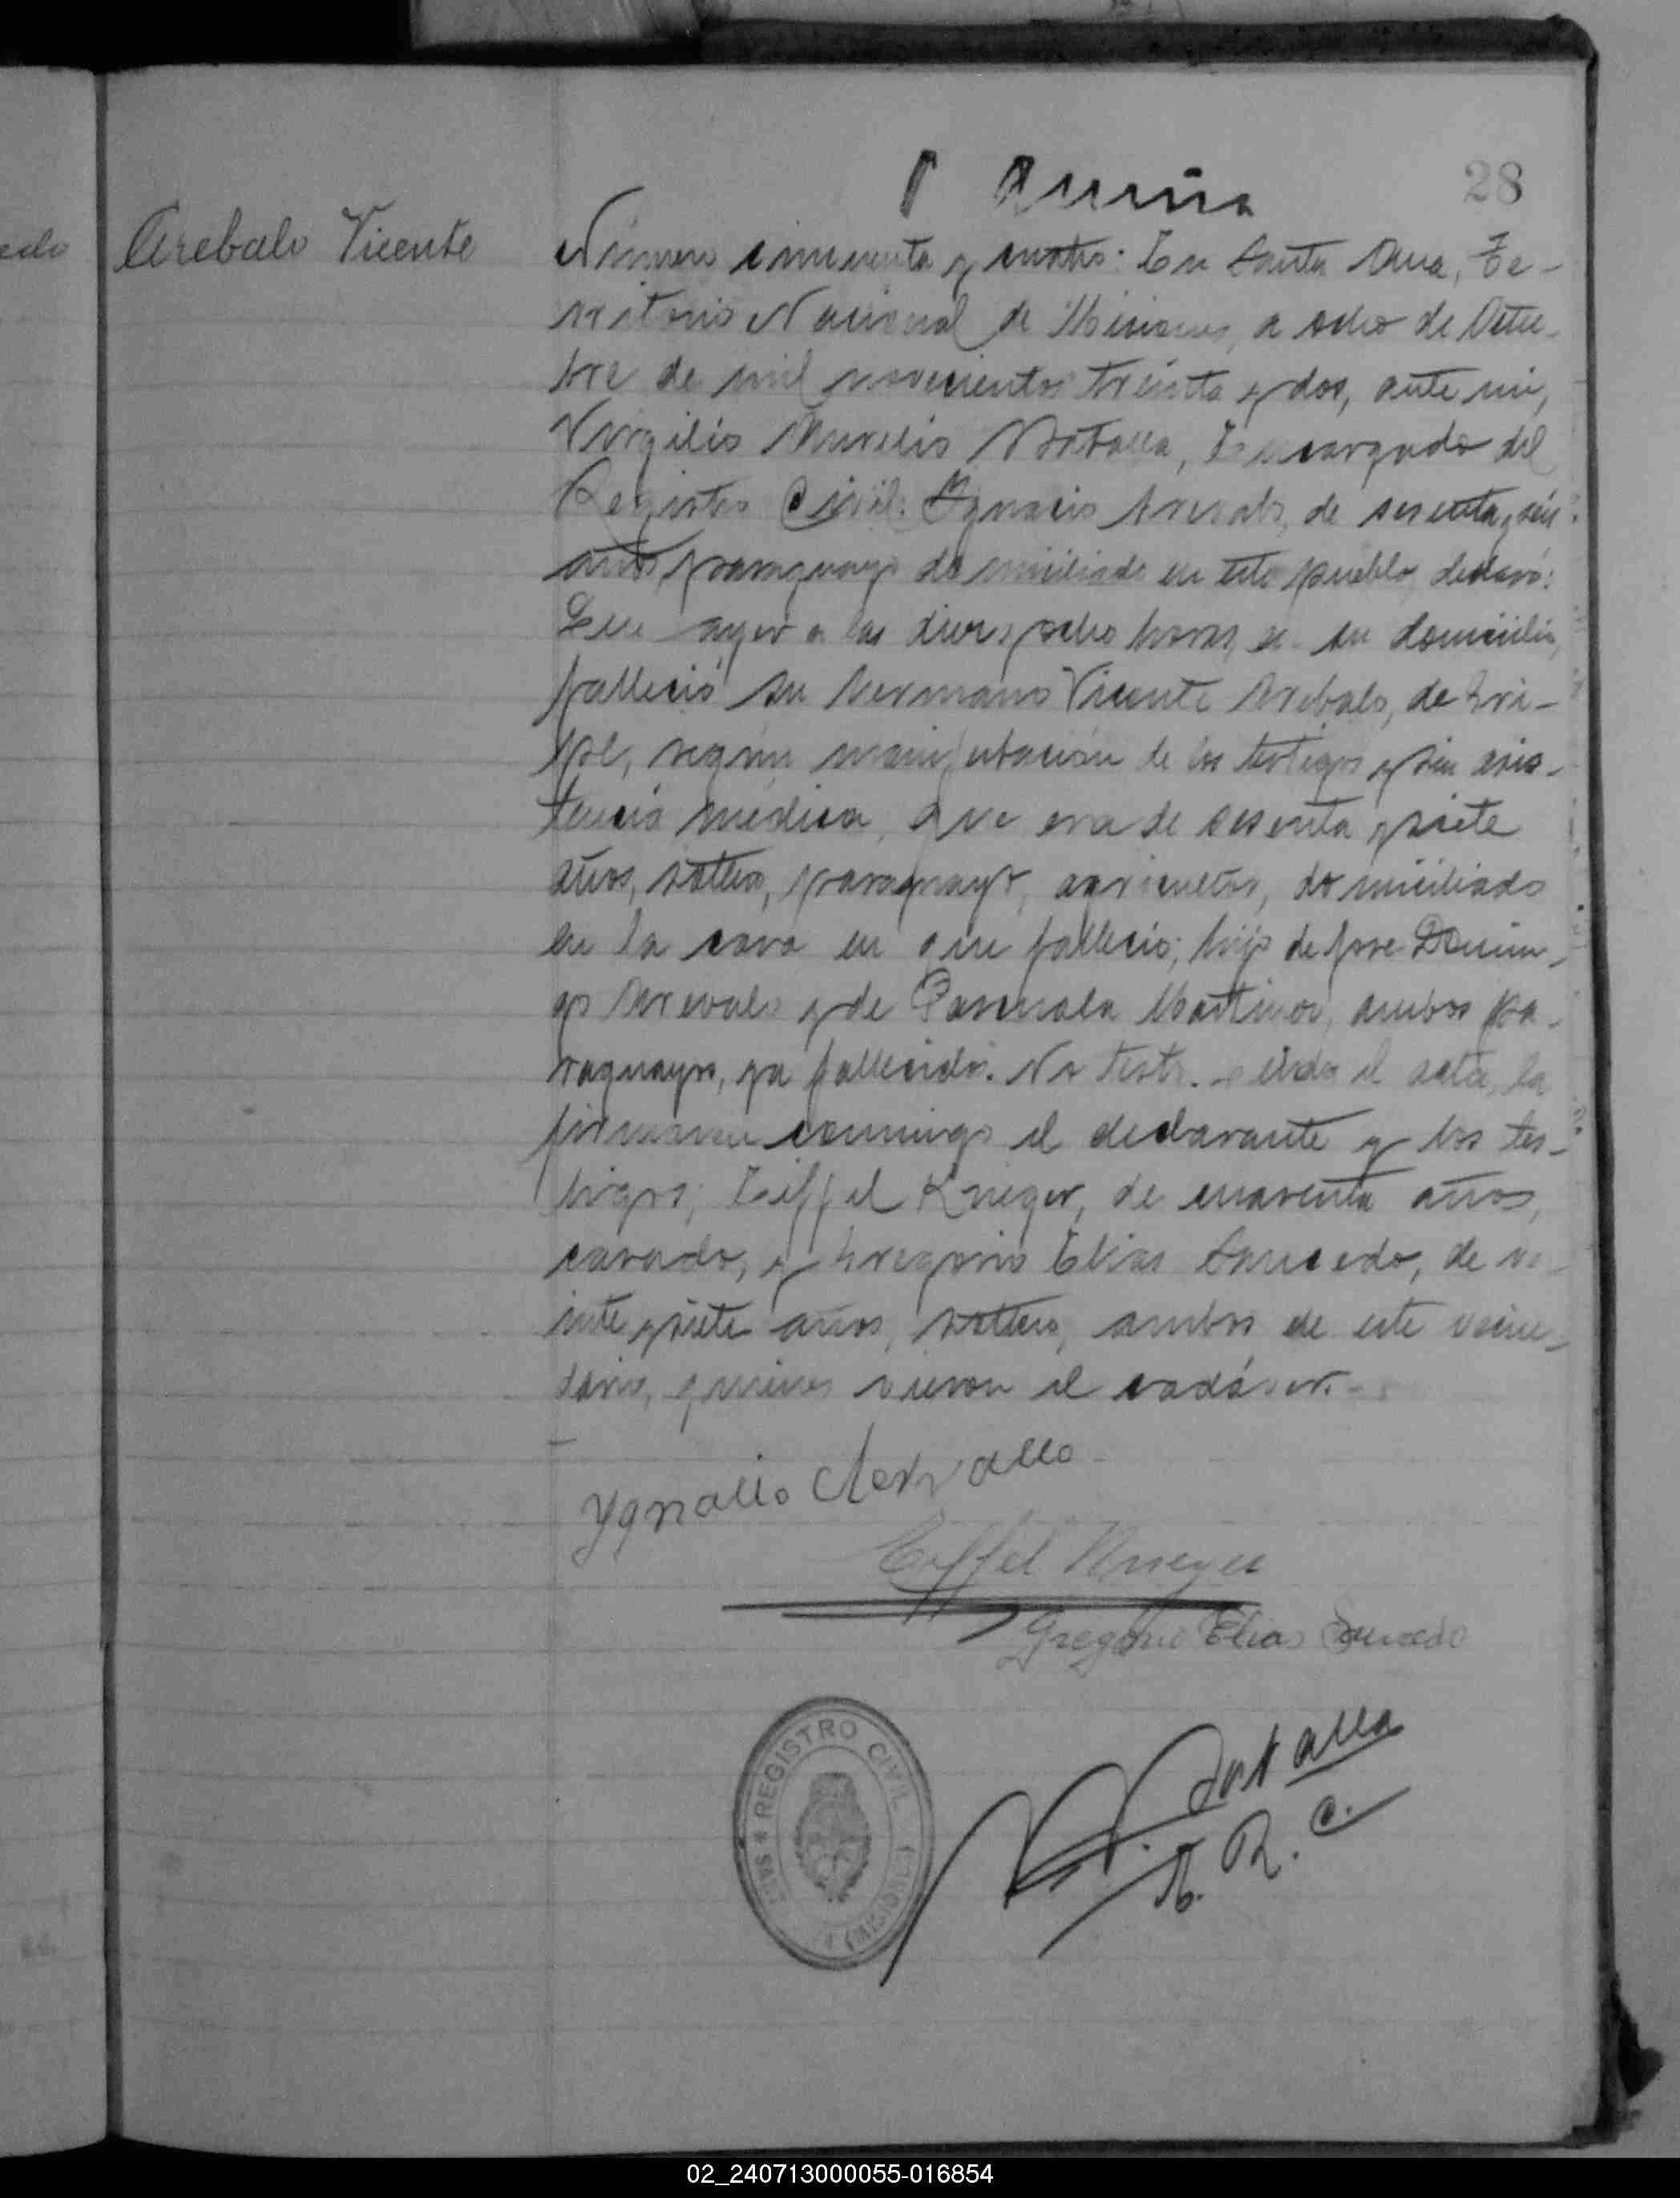 28
Arebalo Vicente
Número cincuenta y cuatro: En Santa Ana, Te-
rritorio Nacional de Misiones, a ocho de Octu-
bre de mil novecientos treinta y dos, ante mi,
Virgilio Aurelio Batalla, Encargado del
Registro Civil: Ygnacio Arevalo, de sesenta y seis
años, paraguayo domiciliado en este pueblo, declaró:
Que ayer a las diez y ocho horas, en su domicilio,
falleció su hermano Vicente Arebalo, de Gri-
pe, según manifestación de los testigos y sin asis-
tencia médica, que era de sesenta y siete
años, soltero, paraguayo, agricultor, domiciliado
en la casa en que falleció; hijo de José Domin-
go Arevalo y de Pascuala Martinez, ambos pa-
raguayos, ya fallecidos. No testó. Leida el acta, la
firmaron conmigo el declarante y los tes-
tigos; Eiffel Krieger, de cuarenta años,
casado, y Gregorio Elias Saucedo, de ve-
inte y siete años, soltero, ambos de este vecin-
dario, quienes vieron el cadáver.-
Ygnacio
Eiffel Krieger
Gregorio Elias Saucedo
REGISTRO CIVIL
Batalla
E. R. C.
02_240713000055-016854